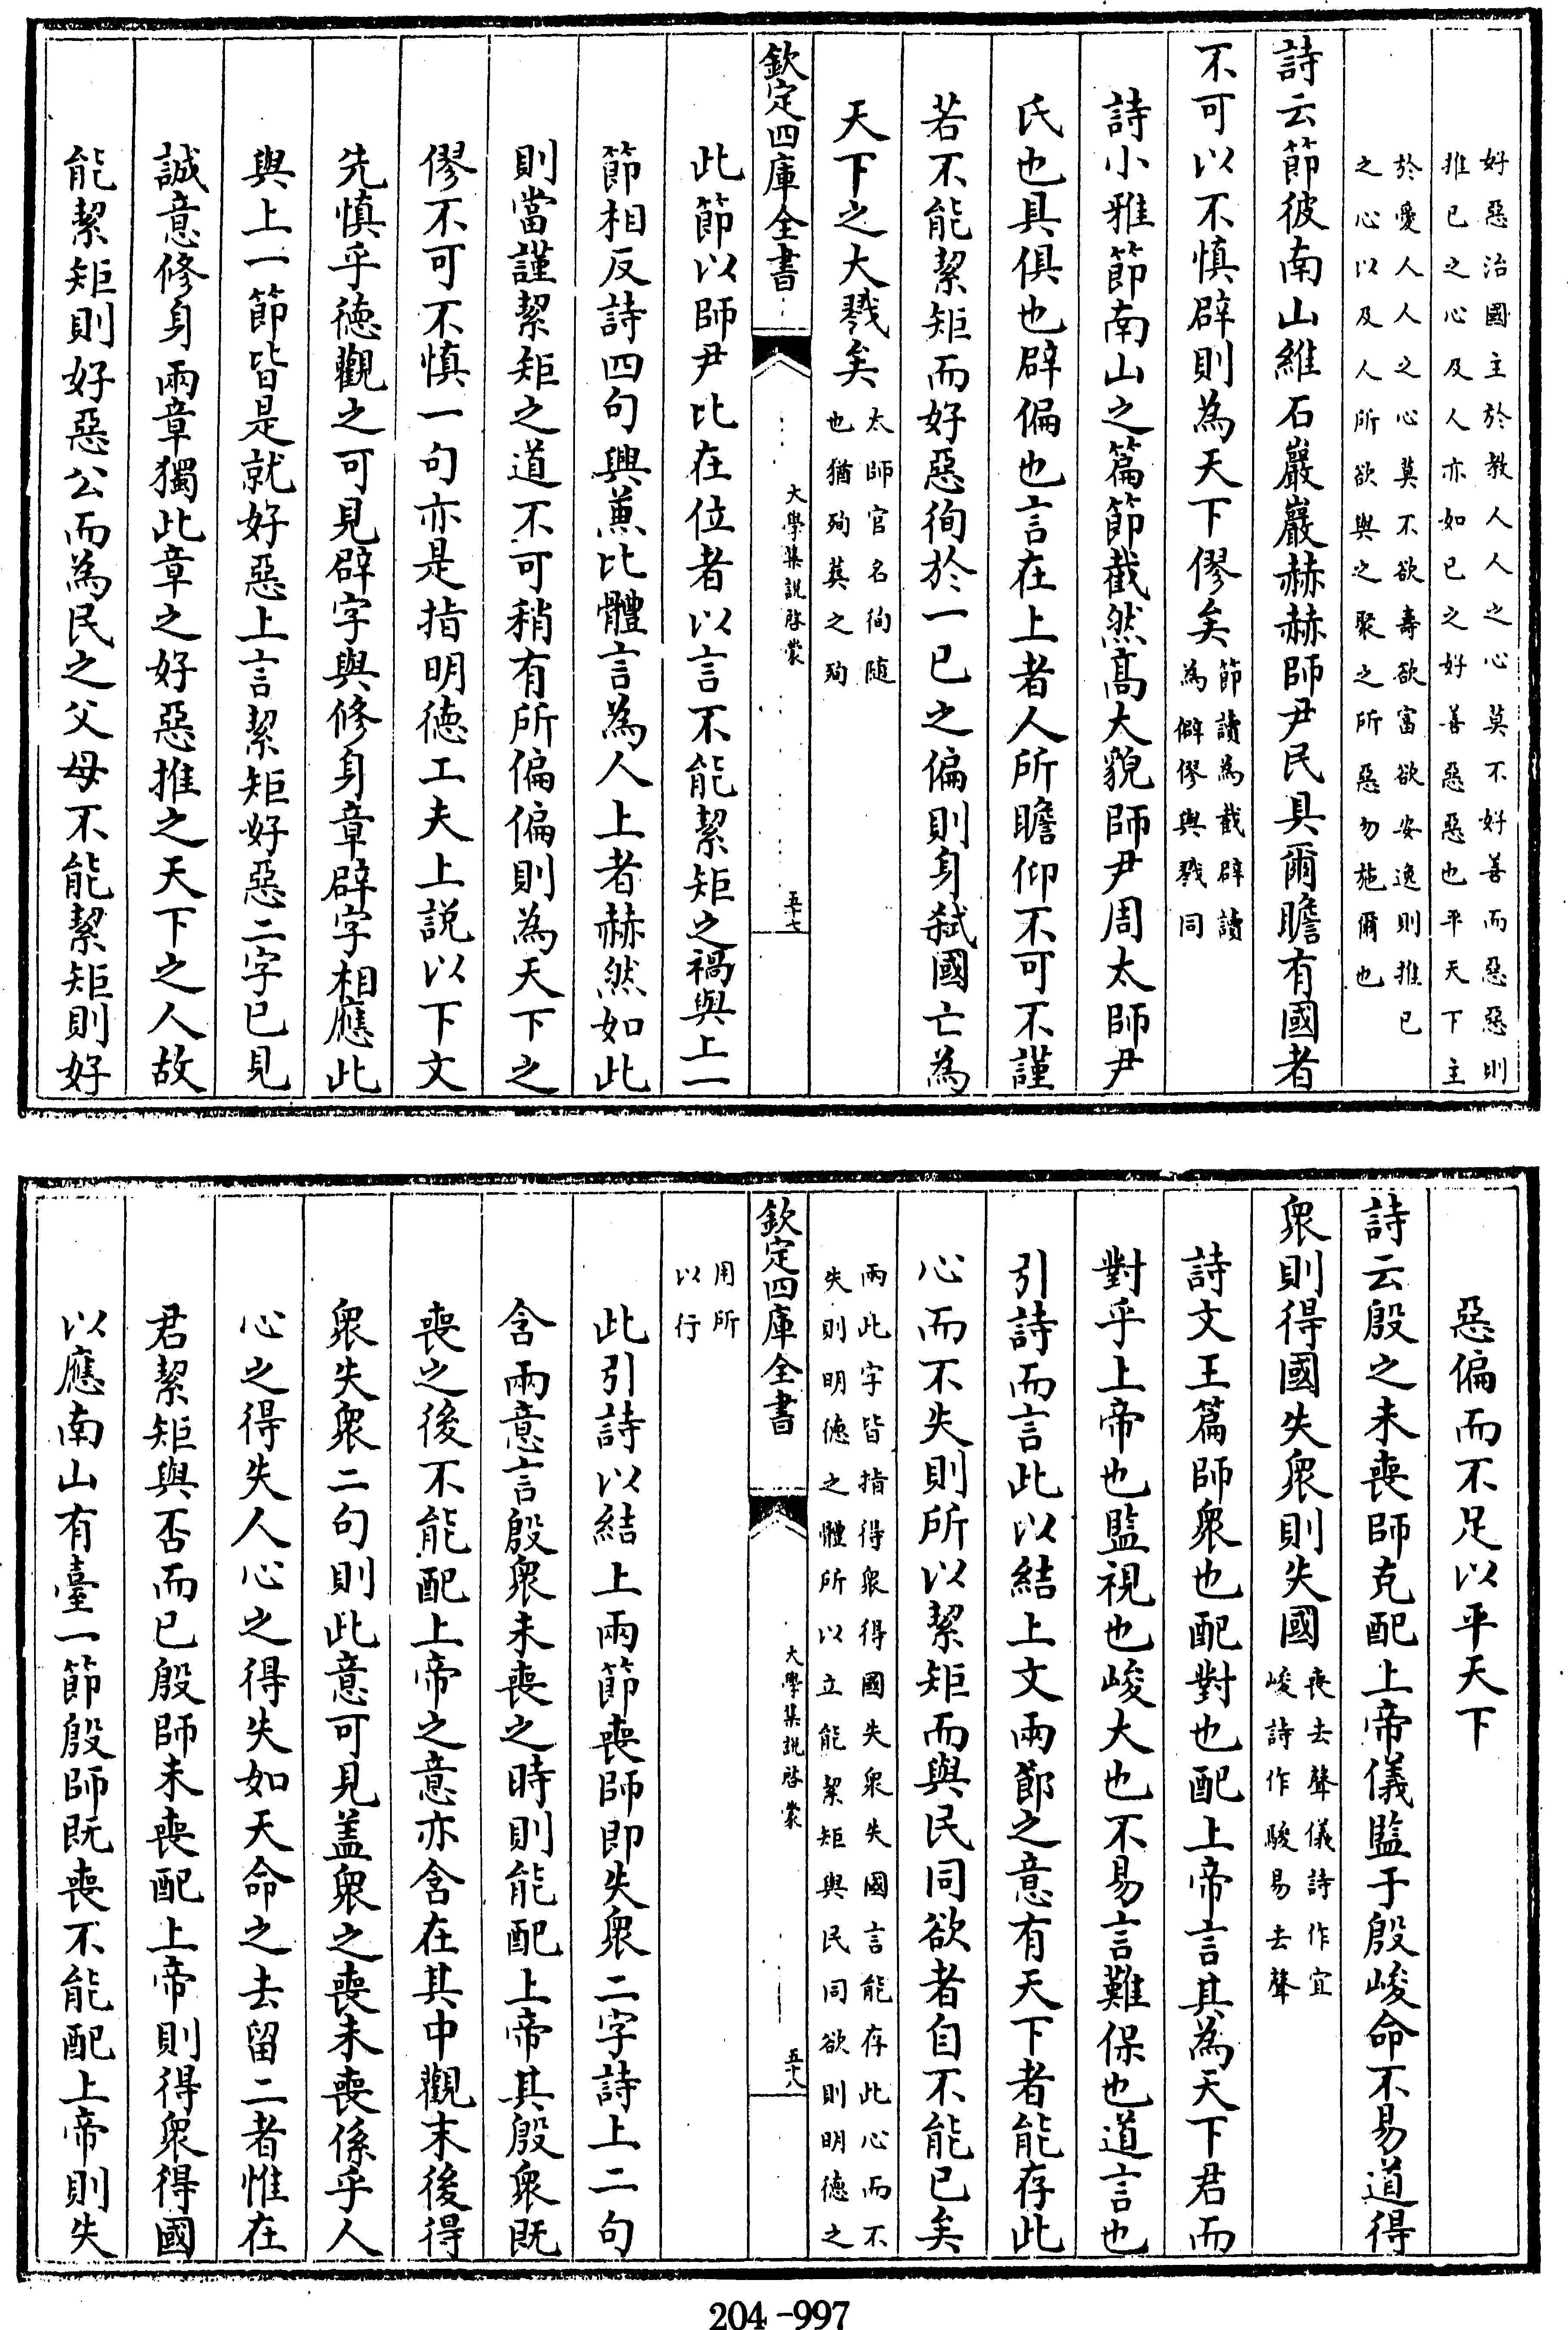 好惡治國主於教人人之心莫不好善而惡惡則
推已之心及人亦如已之好善惡惡也平天下主
於愛人人之心莫不欲壽欲富欲安逸則推已
之心以及人所欲與之聚之所惡勿施爾也
詩云節彼南山維石巖巖赫赫師尹民具爾瞻有國者
不可以不慎辟則為天下僇矣
節讀為截辟讀
為僻僇與戮同
詩小雅節南山之篇節截然髙大貌師尹周太師尹
氏也具俱也辟偏也言在上者人所瞻仰不可不謹
若不能絜矩而好惡徇於一已之偏則身弑國亡為
天下之大戮矣
太師官名徇隨
也猶殉葬之殉
欽定四庫全書
大學集説啓蒙
五十七
此節以師尹比在位者以言不能絜矩之禍與上一
節相反詩四句興兼比體言為人上者赫然如此
則當謹絜矩之道不可稍有所偏偏則為天下之
僇不可不慎一句亦是指明徳工夫上説以下文
先慎乎徳觀之可見辟字與修身章辟字相應此
與上一節皆是就好惡上言絜矩好惡二字已見
誠意修身兩章獨此章之好惡推之天下之人故
能絜矩則好惡公而為民之父母不能絜矩則好
惡偏而不足以平天下
詩云殷之未喪師克配上帝儀監于殷峻命不易道得
衆則得國失衆則失國
喪去聲儀詩作宜
峻詩作駿易去聲
詩文王篇師衆也配對也配上帝言其為天下君而
對乎上帝也監視也峻大也不易言難保也道言也
引詩而言此以結上文兩節之意有天下者能存此
心而不失則所以絜矩而與民同欲者自不能已矣
兩此字皆指得衆得國失衆失國言能存此心而不
失則明徳之體所以立能絜矩與民同欲則明徳之
欽定四庫全書
大學集説啓蒙
五十八
用所
以行
此引詩以結上兩節喪師即失衆二字詩上二句
含兩意言殷衆未喪之時則能配上帝其殷衆既
喪之後不能配上帝之意亦含在其中觀末後得
衆失衆二句則此意可見盖衆之喪未喪係乎人
心之得失人心之得失如天命之去留二者惟在
君絜矩與否而已殷師未喪配上帝則得衆得國
以應南山有臺一節殷師既喪不能配上帝則失
204-997